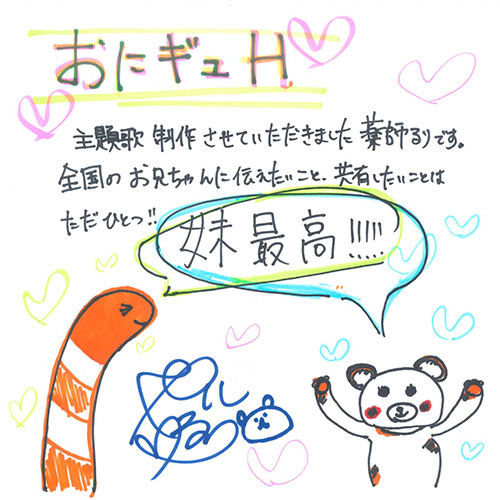 おにギュH
主題歌制作させていただきました薬師るりです。
全国のお兄ちゃんに伝えたいこと、共有したいことは
ただひとつ!!
妹最高!!!!!